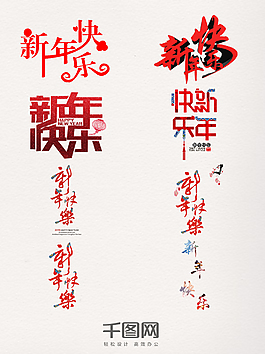 新年快乐
新年快乐
新年快乐
HAPPY
NEW YEAR
快新
乐年
新年快樂
新年快樂
新年快樂
新年快乐
千图网
轻松设计 高效办公